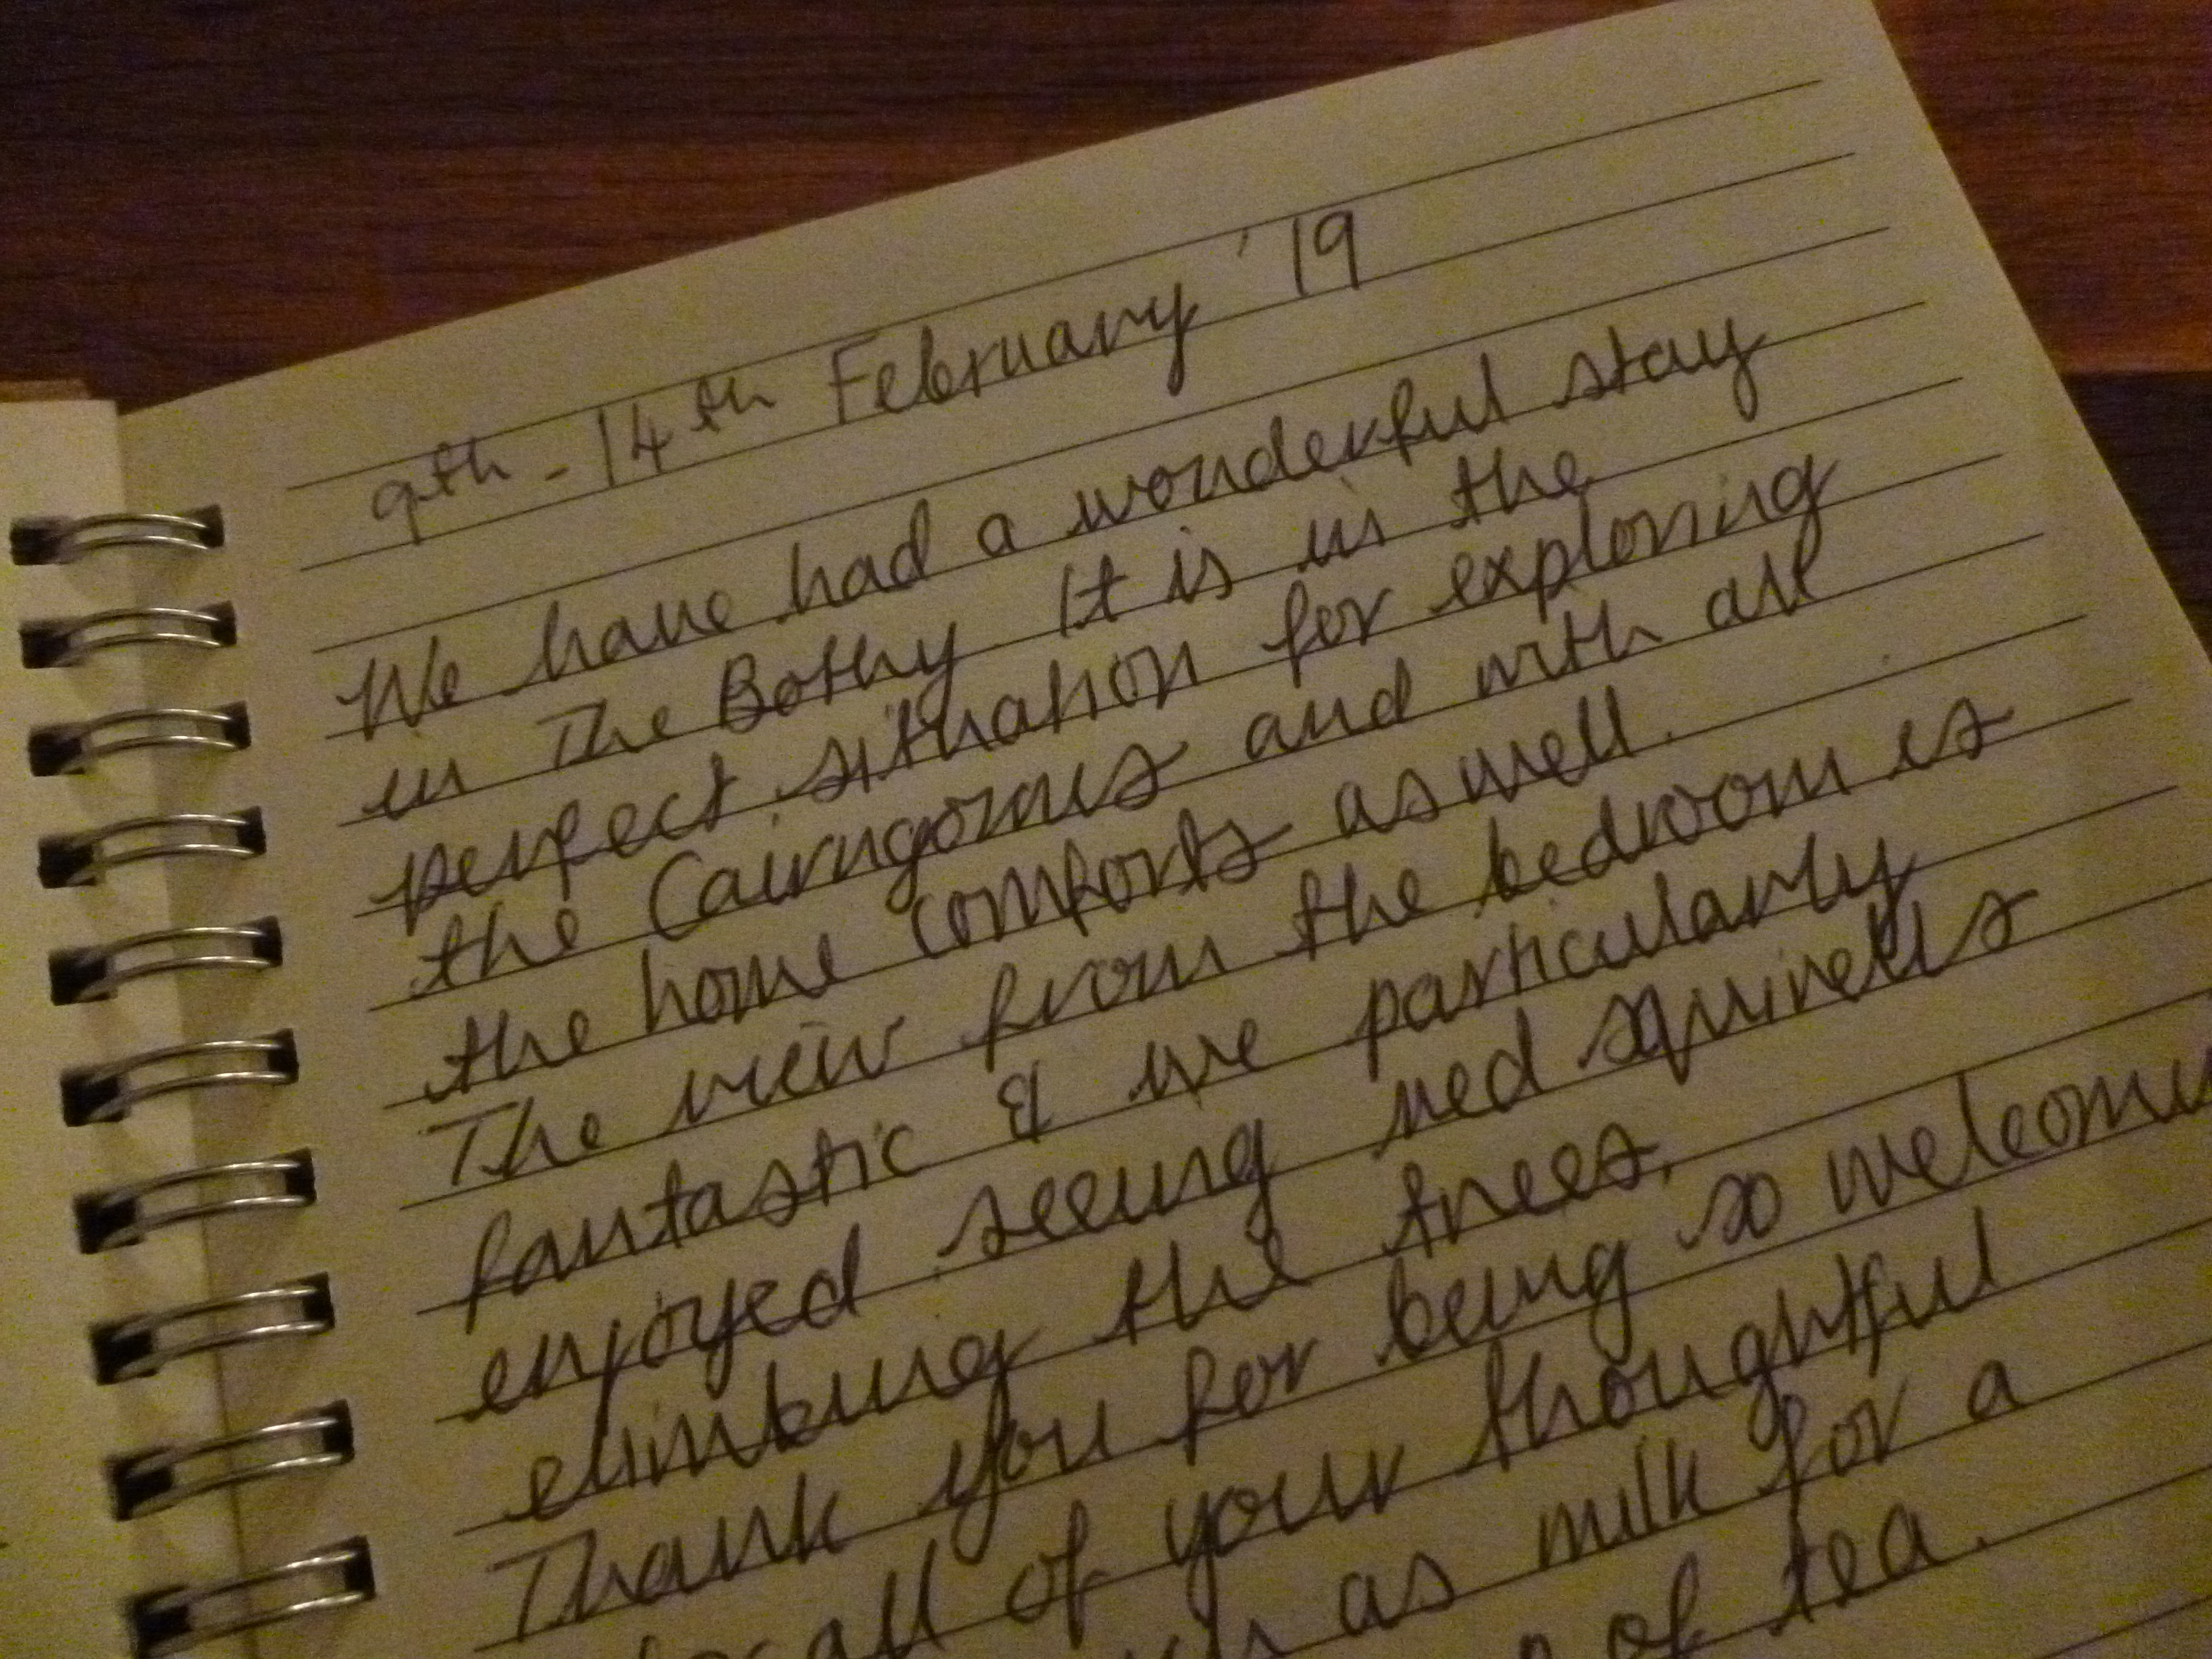 9th - 14th February '19
We have had a wonderful stay
in The Bothy It is in the
perfect situation for exploring
the Cairngorms and with all
the home comforts as well.
The view from the bedroom is
fantastic & we particularly
enjoyed seeing red squirrels
climbing the trees.
Thank you for being so
all of your thoughtful
as milk for a
of tea.